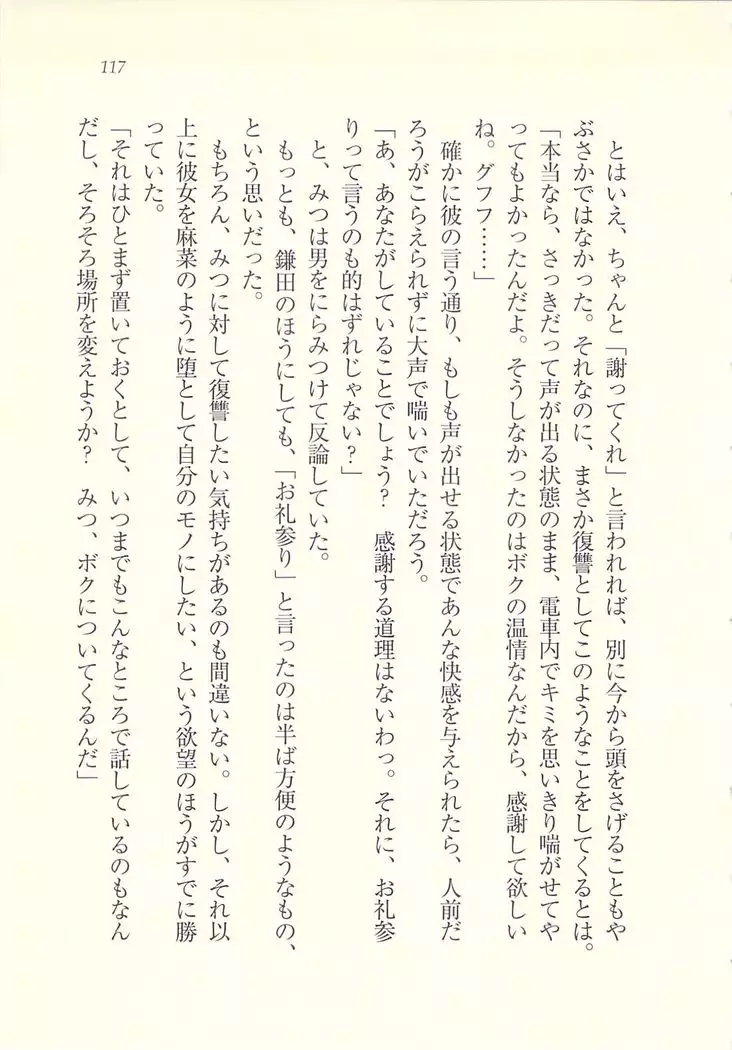 117
とはいえ、ちゃんと「謝ってくれ」と言われれば、別に今から頭をさげることもや
ぶさかではなかった。それなのに、まさか復讐としてこのようなことをしてくるとは。
「本当なら、さっきだって声が出る状態のまま、電車内でキミを思いきり喘がせてや
ってもよかったんだよ。そうしなかったのはボクの温情なんだから、感謝して欲しい
ね。グフフ……」
確かに彼の言う通り、もしも声が出せる状態であんな快感を与えられたら、人前だ
ろうがこらえられずに大声で喘いでいただろう。
「あ、あなたがしていることでしょう？　感謝する道理はないわっ。それに、お礼参
りって言うのも的はずれじゃない？」
と、みつは男をにらみつけて反論していた。
もっとも、鎌田のほうにしても、「お礼参り」と言ったのは半ば方便のようなもの、
という思いだった。
もちろん、みつに対して復讐したい気持ちがあるのも間違いない。しかし、それ以
上に彼女を麻菜のように堕として自分のモノにしたい、という欲望のほうがすでに勝
っていた。
「それはひとまず置いておくとして、いつまでもこんなところで話しているのもなん
だし、そろそろ場所を変えようか？　みつ、ボクについてくるんだ」